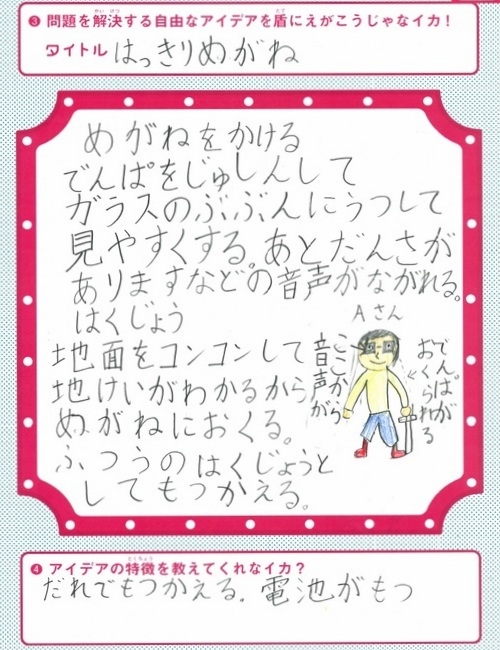 ❸ 問題を解決する自由なアイデアを盾にえがこうじゃなイカ！
タイトル はっきりめがね
めがねをかける
でんぱをじゅしんして
ガラスのぶぶんにうつして
見やすくする。あとだんさが
ありますなどの音声がながれる。
はくじょう
地面をコンコンして
地けいがわかるから
めがねにおくる。
ふつうのはくじょうと
してもつかえる。
Aさん
ここから
音声が
でんぱが
おくられる
❹ アイデアの特徴を教えてくれなイカ？
だれでもつかえる。電池がもつ